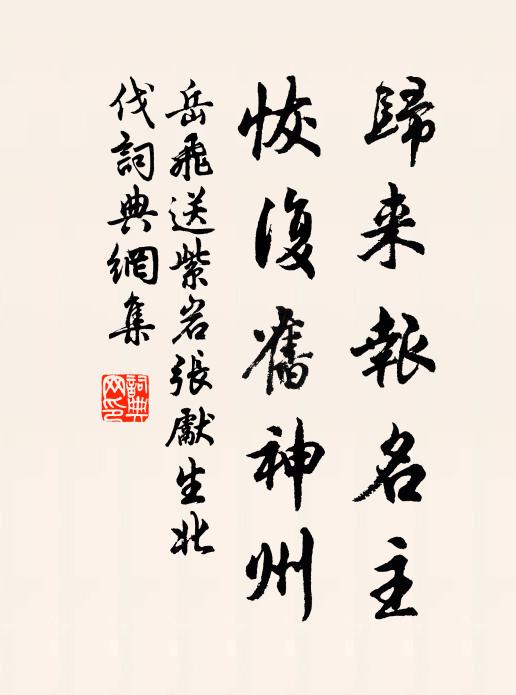 歸来報名主
恢復舊神州
岳飛送紫岩張獻生北
伐詞典網集
詞典
网印